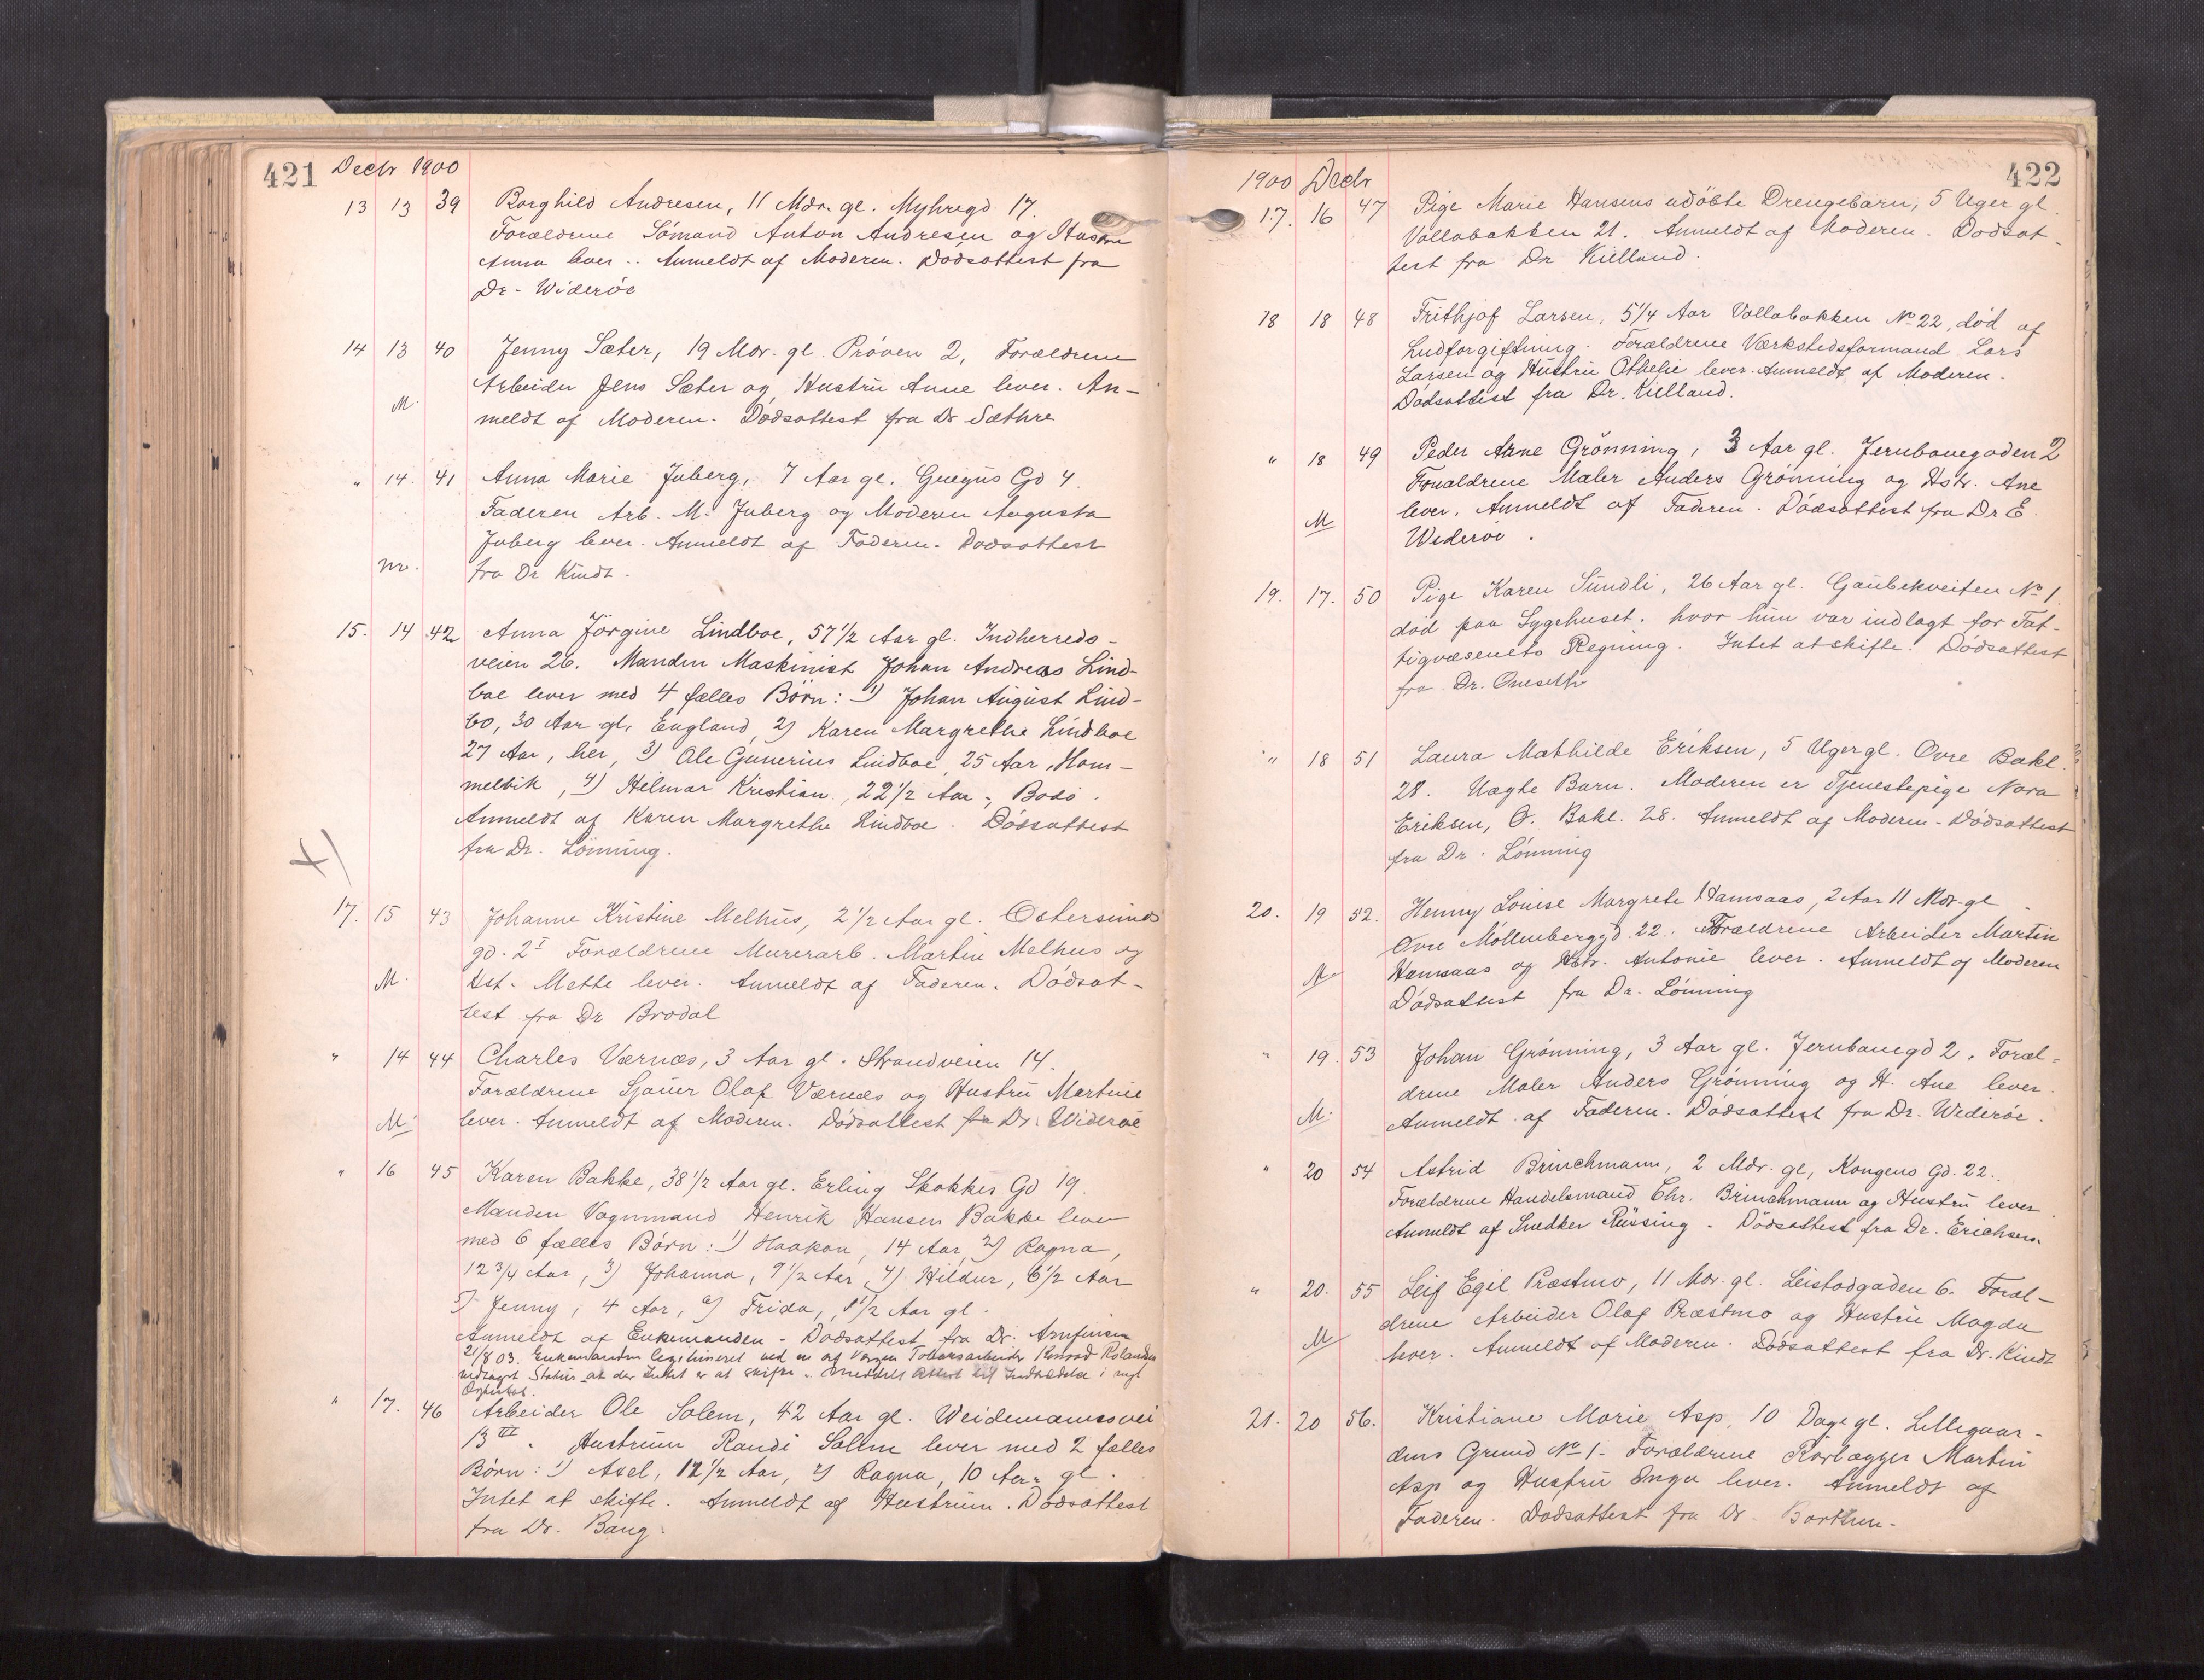 421 Decbr 1900
13 13 39 Borghild Andresen, 11 Mdr. gl. Myhregd 17.
Forældrene Sömand Anton Andresen og Hustru
Anna lever. Anmeldt af Moderen. Dödsattest fra
Dr. Wideröe
14 13 40 Jenny Sæter, 19 Mdr. gl. Pröven 2, Forældrene
Arbeider Jens Sæter og Hustru Anne lever. An-
M. meldt af Moderen. Dödsattest fra Dr Sæthre
" 14. 41 Anna Marie Juberg, 7 Aar gl. Gregus Gd 4.
Faderen Arb. M. Juberg og Moderen Augusta
Juberg lever. Anmeldt af Faderen. Dödsattest
m. fra Dr Kindt.
15. 14 42 Anna Jörgine Lindboe, 57 1/2 Aar gl. Indherreds-
veien 26. Manden Maskinist Johan Andreas Lind-
boe lever med 4 fælles Börn: 1) Johan August Lind-
bo, 30 Aar gl, England, 2) Karen Margrethe Lindboe
27 Aar, her, 3) Ole Gunerius Lindboe, 25 Aar, Hom-
melvik, 4) Helmar Kristian, 22 1/2 Aar, Bodö.
Anmeldt af Karen Margrethe Lindboe. Dödsattest
fra Dr. Lönning.
17. 15 43 Johanne Kristine Melhus, 2 1/2 Aar gl. Östersunds
gd. 2 I Forældrene Murerarb. Martin Melhus og
M. Hst. Mette lever. Anmeldt af Faderen. Dödsat-
test fra Dr Brodal
" 14 44 Charles Værnæs, 3 Aar gl. Strandveien 14.
Forældrene Sjauer Olaf Værnæs og Hustru Martine
M. lever. Anmeldt af Moderen. Dödsattest fra Dr. Wideröe
" 16 45 Karen Bakke, 38 1/2 Aar gl. Erling Skakkes Gd 19.
Manden Vognmand Henrik Hansen Bakke lever
med 6 fælles Börn: 1) Haakon, 14 Aar, 2) Ragna,
12 3/4 Aar, 3) Johanna, 9 1/2 Aar, 4) Hildur, 6 1/2 Aar
5) Jenny, 4 Aar, 6) Frida, 1 1/2 Aar gl.
Anmeldt af Enkemanden. Dödsattest fra Dr. Arnfinsen
21/8 03. Enkemanden legitimeret ved en af Værgen Konrad
vedtaget Status at der Intet er at skifte. Meddelt Attest til Indtrædelse i nyt
Ægteskab.
" 17. 46 Arbeider Ole Solem, 42 Aar gl. Weidemannsvei
13 III. Hustruen Randi Solem lever med 2 fælles
Börn: 1) Axel, 12 1/2 Aar, 2) Ragna, 10 Aar gl.
Intet at skifte. Anmeldt af Hustruen. Dödsattest
fra Dr. Bang.
1900 Decbr 422
17. 16 47 Pige Marie Hansens udöbte Drengebarn, 5 Uger gl.
Vollabakken 21. Anmeldt af Moderen. Dödsat-
test fra Dr Kielland.
18 18 48 Frithjof Larsen, 5 1/4 Aar Vollabakken No 22, död af
Ludforgiftning. Forældrene Værkstedsformand Lars
Larsen og Hustru Othelie lever. Anmeldt af Moderen.
Dödsattest fra Dr. Kielland.
" 18 49 Peder Arne Grönning, 3 Aar gl. Jernbanegaden 2
Forældrene Maler Anders Grönning og Hstr. Ane
M lever. Anmeldt af Faderen. Dödsattest fra Dr E.
Wideröe.
19. 17. 50 Pige Karen Sundli, 26 Aar gl. Gaubekveiten No 1.
död paa Sygehuset. hvor hun var indlagt for Fat-
tigvæsenets Regning. Intet at skifte. Dödsattest
fra Dr. Onseth
" 18 51 Laura Mathilde Eriksen, 5 Uger gl. Övre Bakl.
28. Uægte Barn. Moderen er Tjenestepige Nora
Eriksen, Ö. Bakl. 28. Anmeldt af Moderen. Dödsattest
fra Dr. Lönning
20. 19 52. Henny Louise Margrete Hamsaas, 2 Aar 11 Mdr. gl
Övre Möllenberggd. 22. Forældrene Arbeider Martin
M Hamsaas og Hstr. Antonie lever. Anmeldt af Moderen
Dödsattest fra Dr. Lönning
" 19. 53 Johan Grönning, 3 Aar gl. Jernbanegd 2. Foræl-
drene Maler Anders Grönning og H. Ane lever.
M. Anmeldt af Faderen. Dödsattest fra Dr. Wideröe.
" 20 54 Astrid Brinchmann, 2 Mdr. gl, Kongens Gd. 22.
Forældrene Handelsmand Chr. Brinchmann og Hustru lever.
Anmeldt af Snedker Rüssing. Dödsattest fra Dr. Erichsen.
" 20. 55 Leif Egil Præstmo, 11 Mdr. gl. Leistadgaden 6. Foræl-
drene Arbeider Olaf Præstmo og Hustru Magda
M lever. Anmeldt af Moderen. Dödsattest fra Dr. Kindt
21. 20 56. Kristiane Marie Asp, 10 Dage gl. Lillegaar-
dens Grund No 1. Forældrene Rørlægger Martin
Asp og Hustru Inga lever. Anmeldt af
Faderen. Dödsattest fra Dr.